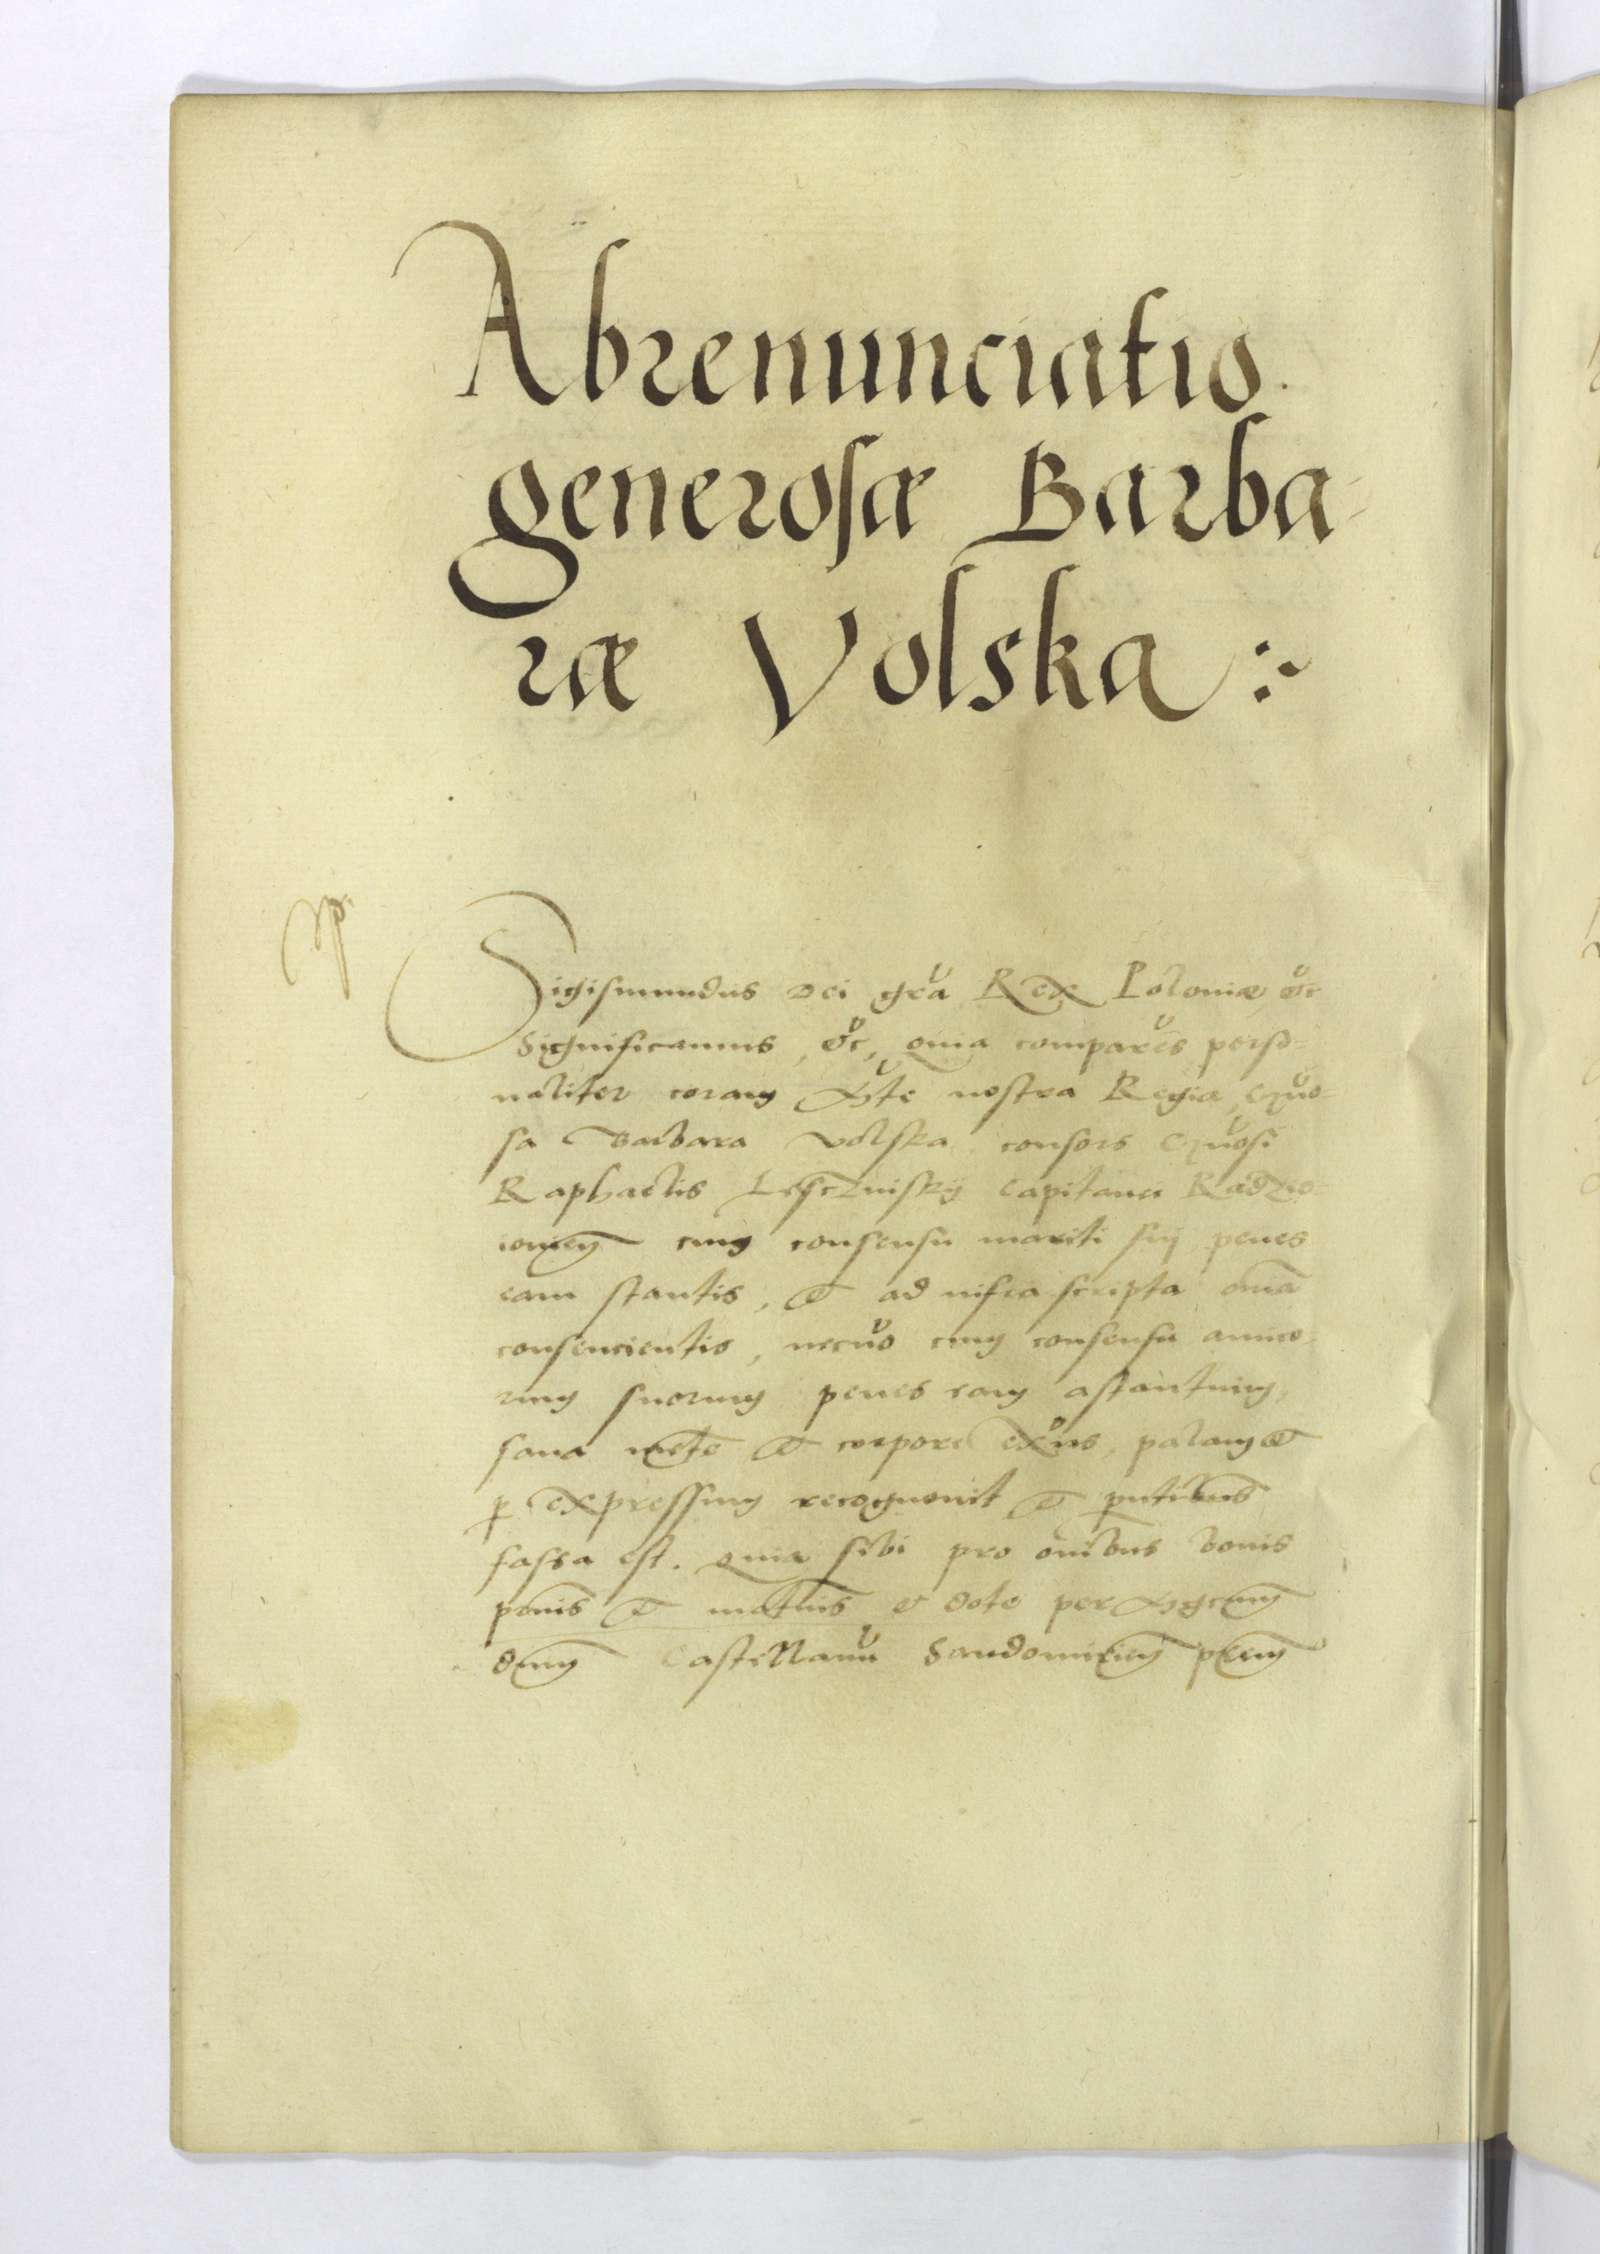 Abrenunciatio
generosæ Barba-
ræ Volska :~
Sigismundus Dei gra Rex Poloniæ, &c
Significamus, &c, quia comparens perso-
naliter coram Mte nostra Regia, Gnro-
sa Barbara Volska, consors Gnrosi
Raphaelis Lesczinskij Capitanei Radzie-
iouien cum consensu mariti sui penes
eam stantis, & ad infra scripta omia
consencientis, necno cum consensu amico-
rum suorum penes eam astantium,
sana mete & corpore exns, palam &
p expressum recognouit & pntibus
fassa est. quia sibi pro omibus bonis
pnis & matnis & dote per Mgcum
dnum Castellanu Sandomirien prem